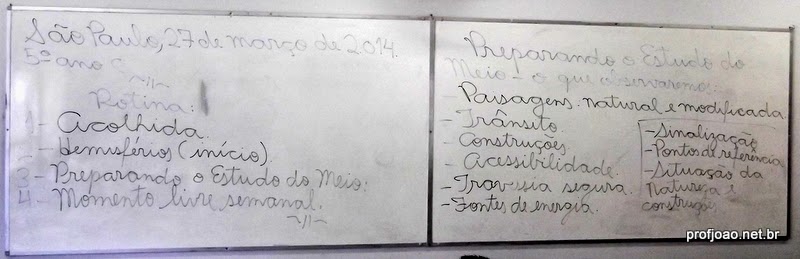 São Paulo, 27 de março de 2014.
5º ano C
~//~
Rotina:
1 - Acolhida.
2 - Hemisférios (início).
3 - Preparando o Estudo do Meio:
4 - Momento livre semanal.
~//~
Preparando o Estudo do
Meio - o que observaremos:
- Paisagens: natural e modificada
- Trânsito.
- Construções.
- Acessibilidade.
- Travessia segura.
- Fontes de energia.
- Sinalização
- Pontos de referência
- Situação da
natureza e
construções
profjoao.net.br